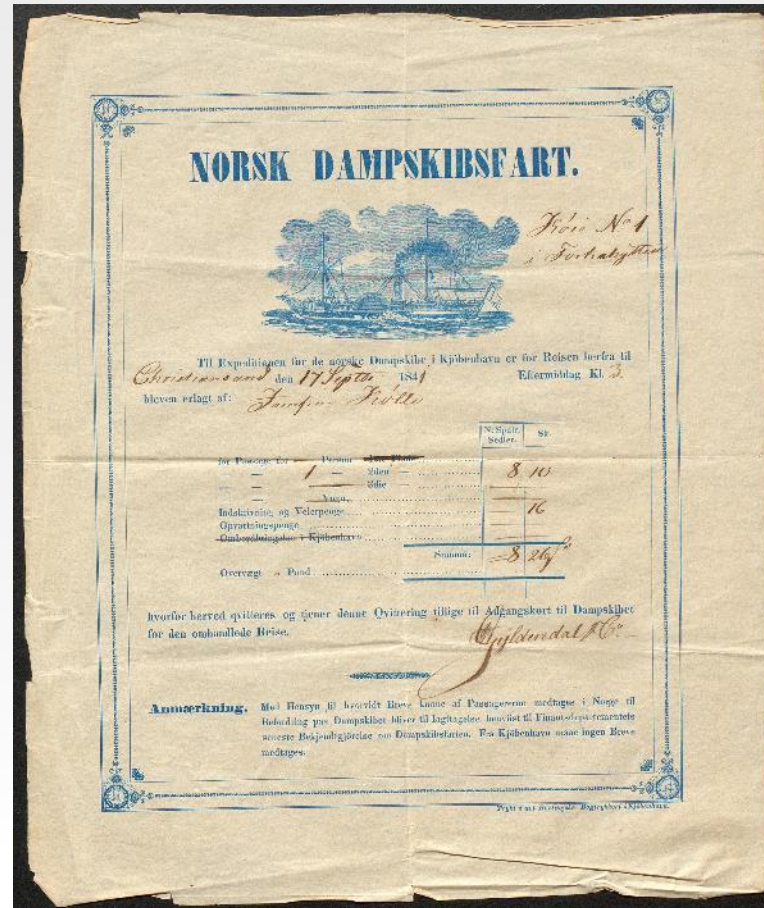 NORSK DAMPSKIBSFART.
Köie No 1
i Forkahytten
Til Expeditionen for de norske Dampskibe i Kjöbenhavn er for Reisen herfra til
Christiansand den 17 Septbr 1841 Eftermiddag Kl. 3.
bleven erlagt af: Jomfru
N. Specie Sedler. Sk.
for Passage for — Person
— 1 — 2den — 8 10
— — 3die —
— Vogn
Indskrivning og Veierpenge 16
Opvartningspenge
Ombordbringelse i Kjöbenhavn
Summa: 8 26
Overvægt " Pund
hvorfor herved qvitteres og tjener denne Qvittering tillige til Adgangskort til Dampskibet
for den omhandlede Reise.
Gyldendal & Co
Anmærkning. Med Hensyn til hvorvidt Breve kunne af Passagererne medtages i Norge til
Befordring paa Dampskibet bliver til Iagttagelse henviist til Finantsdepartementets
seneste Bekjendtgjörelse om Dampskibsfarten. Fra Kjöbenhavn maae ingen Breve
medtages.